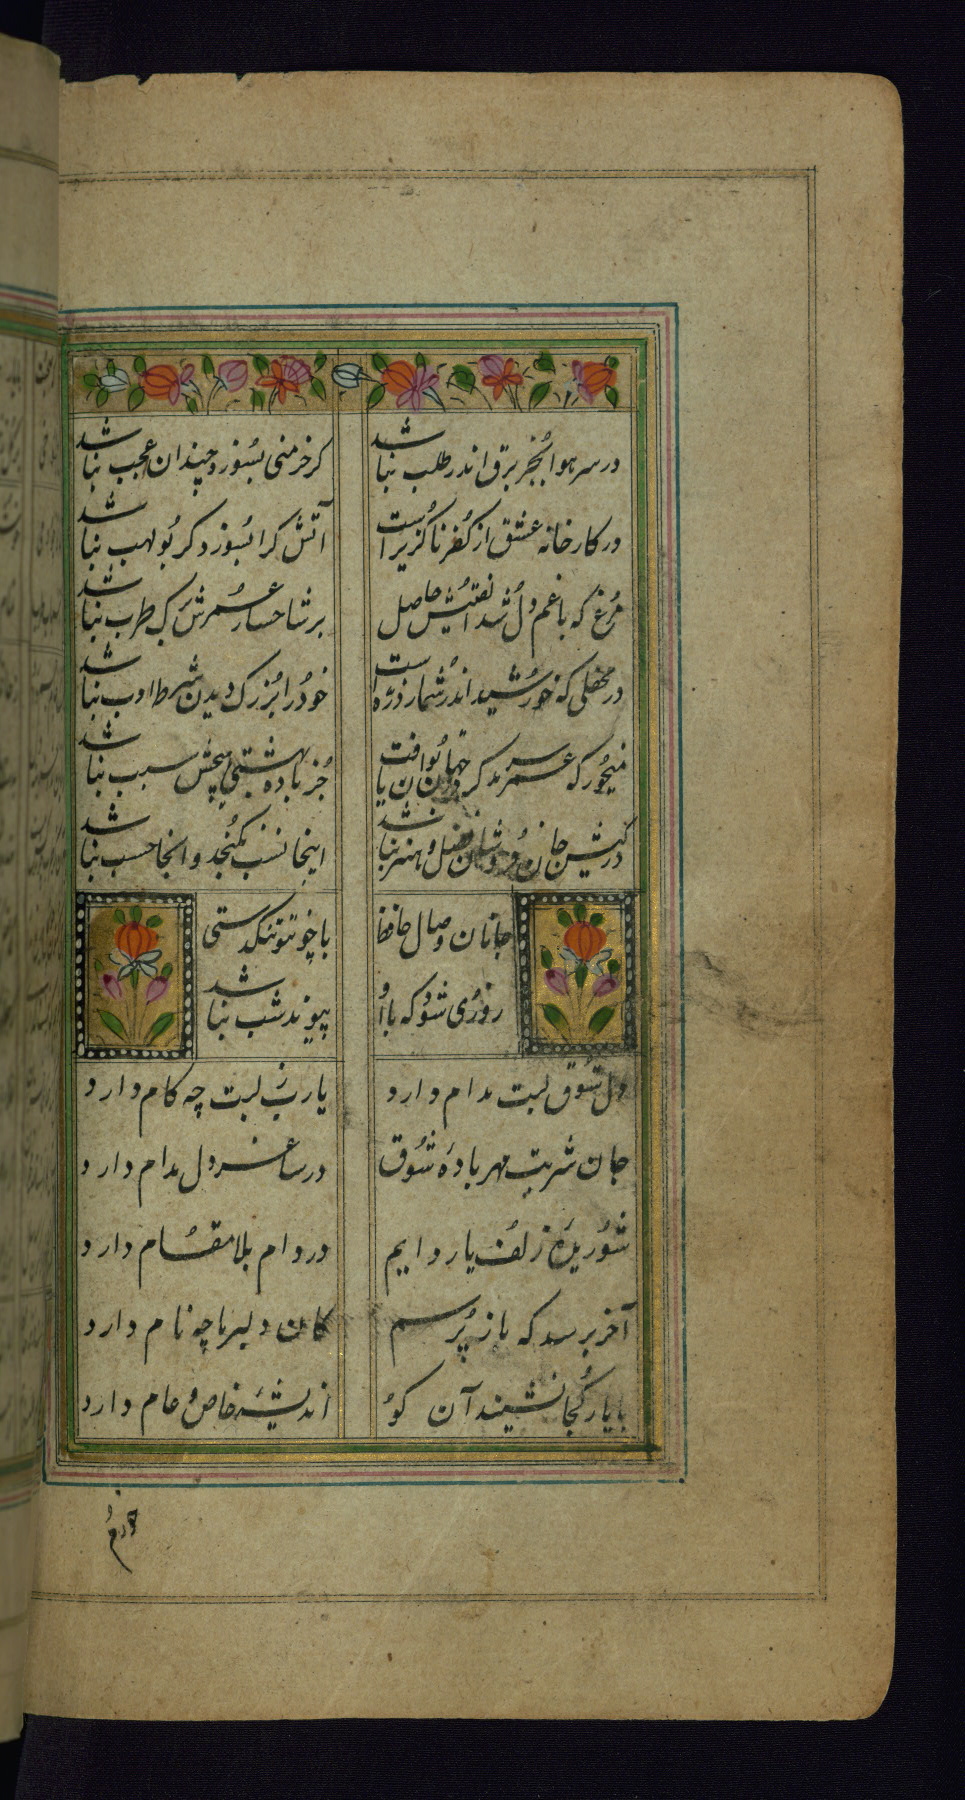 در سر هوا بجز برق اندر طلب نباشد
کر خرمنی بسوزد چندان عجب نباشد
در کارخانه عشق از کفر ناگزیر است
آتش کرا بسوزد کر بولهب نباشد
مرغ که با غم دل شد الفتیش حاصل
برشاخسار عمرش برک طرب نباشد
در محفلی که خورشید اندر شمار ذره است
خود را بزرک دیدن شرط ادب نباشد
میخور که عمر سرمد کر در جهان توان یافت
جز باده بهشتی هیچش سبب نباشد
در کیش جان فروشان فضل و هنر نباشد
اینجا نسب نکنجد و انجا حسب نباشد
جانان وصال حافظ
با چو تو تنکدستی
روزی شود که با او
پیوند شب نباشد
دل شوق لبت مدام دارد
یارب ز لبت چه کام دارد
جان شربت مهر باده شوق
در ساغر دل مدام دارد
شوریده زلف یار دایم
در دام بلا مقام دارد
آخر برسد که باز پرسم
کان دلبر ما چه نام دارد
با یار کجا نشیند آن کو
اندیشه خاص و عام دارد
خرم